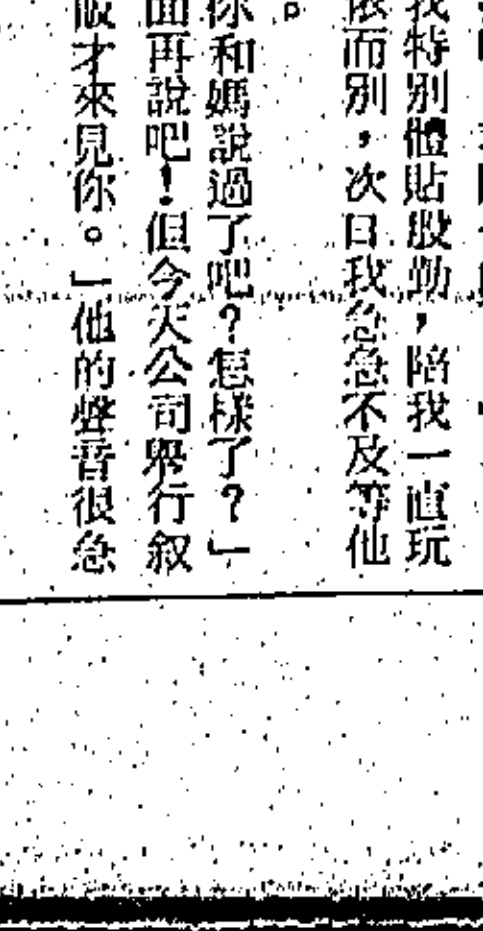 我特別體貼殷勤，陪我一直玩
依而別，次日我急急不及等他
。
你和媽說過了吧？怎樣了？」
面再說吧！但今天公司舉行叙
飯才來見你。」他的聲音很急